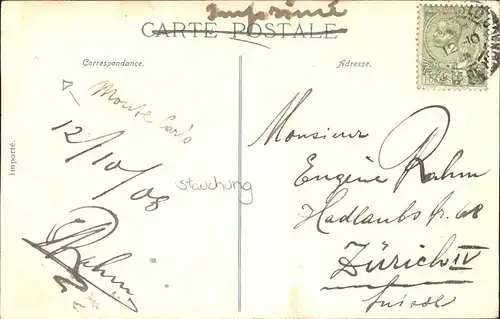 Imprimé
CARTE POSTALE
Correspondance.
Adresse.
Monte Carlo
12/10/08
stauchung
Rahm
Importé.
Monsieur
Eugène Rahm
Hadlaubstr. 68
Zürich IV
Suisse